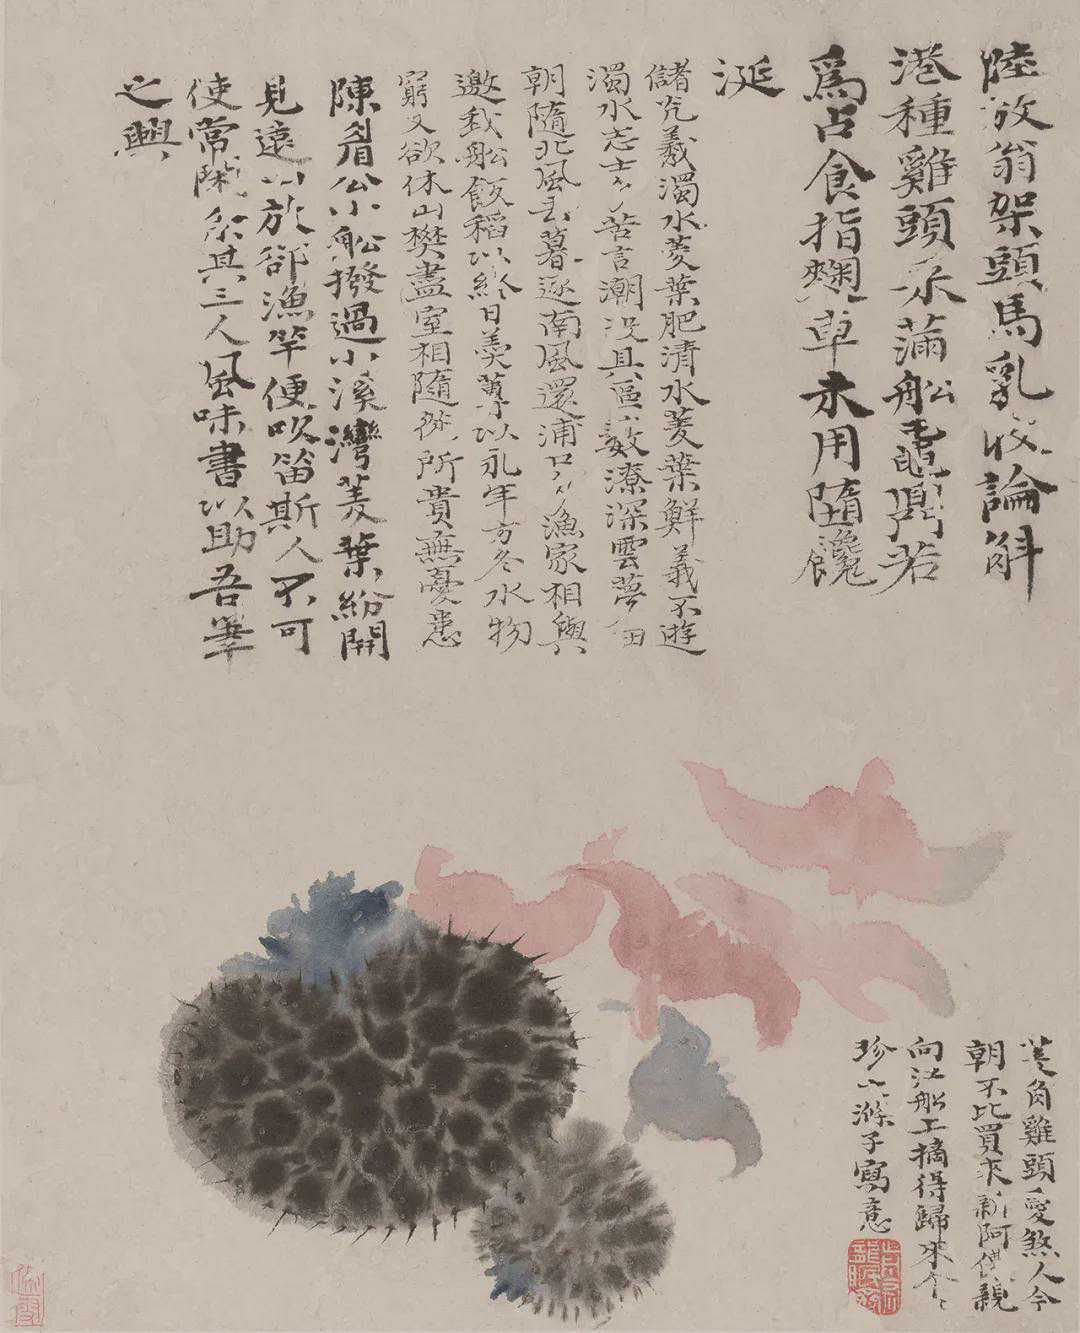 陸放翁架頭馬乳收論斛
港種雞頭采滿船黿鼎若
爲占食指麴車未用墮饞
涎
儲光羲濁水菱葉肥清水菱葉鮮義不遊
濁水志士多苦言潮沒具區藪潦深雲夢田
朝隨北風去暮逐南風還浦口多漁家相與
邀我船飯稻以終日羹蓴以永年方冬水物
窮又欲休山樊盡室相隨從所貴無憂患
陳眉公小船撥過小溪灣菱葉紛開
見遠山放卻漁竿便吹笛斯人不可
使常閑余其三人風味書以助吾筆
之興
菱角雞頭愛煞人今
朝不比買來新阿僊親
向江船上摘得歸來个个
珍 滌子寫意